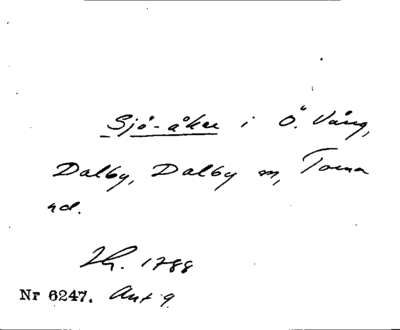 Sjö-åker i Ö. Vång,
Dalby, Dalby sn, Torna
hd.
1788
Nr 6247. Akt 9.